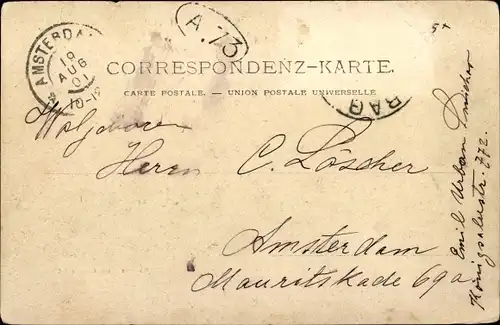 AMSTERDA
19
AUG
01
10-12
A.73
5x
CORRESPONDENZ-KARTE.
CARTE POSTALE. — UNION POSTALE UNIVERSELLE
PRAG
Herrn C. Löscher
Amsterdam
Mauritskade 69a
Emil Urban Smichov
Königsaalerstr. 772.